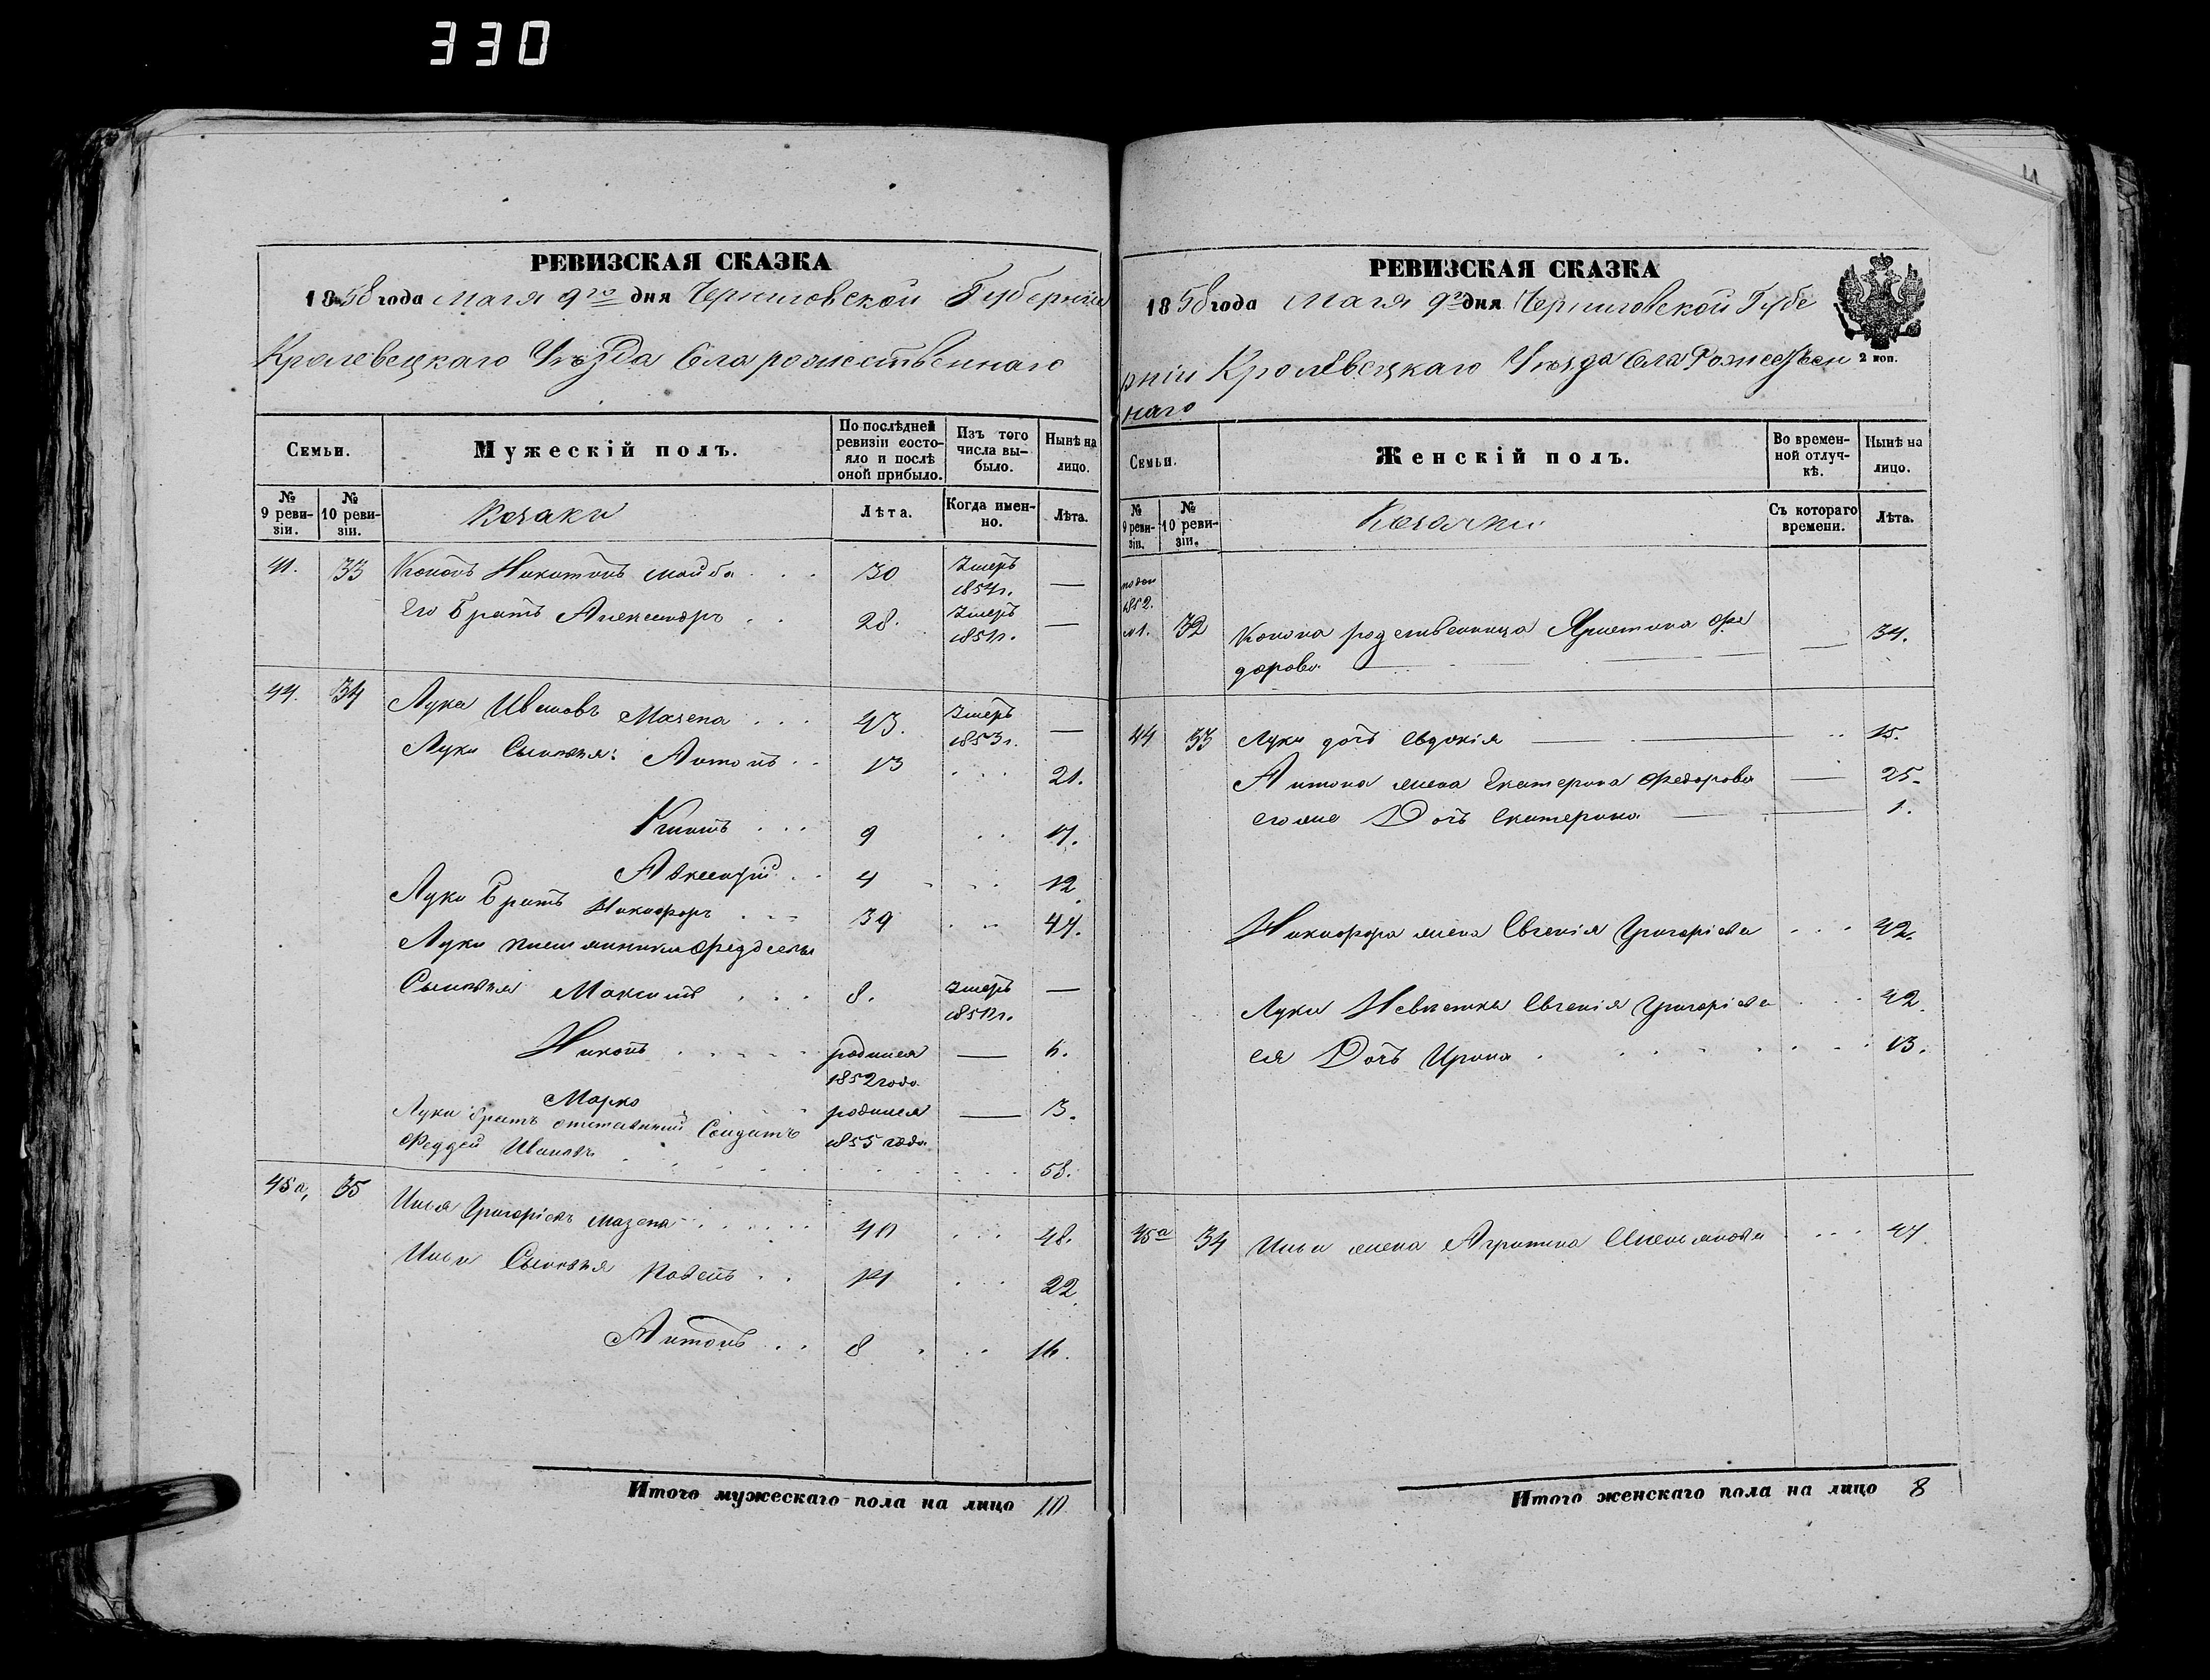 330
РЕВИЗСКАЯ СКАЗКА
1858 года Мая 9го дня Черниговской Губернии
Кролевецкаго Уѣзда Села рожественнаго
Семьи.
Мужескій полъ.
По послѣдней ревизіи состояло и послѣ оной прибыло.
Изъ того числа выбыло.
Нынѣ на лицо.
№ 9 ревизіи.
№ 10 ревизіи.
Козаки
Лѣта.
Когда именно.
Лѣта.
41. 33 Кононъ Никитинъ 30 Умеръ —
Его Братъ Александръ 28. Умеръ —
44. 34 Лука Ивановъ Мазепа 43. Умеръ 1853 г. —
Луки Сыновья: Антонъ 13 21.
9 17.
Авксентій 4 12
Луки Братъ Никифоръ 39 47.
Луки племянники Фаддеевы
Сыновья Максимъ 8. Умеръ —
Никонъ родился 1852 года — 6.
Марко родился 1855 года — 3.
Луки братъ отставный Солдатъ
Фаддей Ивановъ 58.
45 а, 35 Илья Григоріевъ Мазепа 40 48.
Ильи Сыновья Павелъ 14 22.
Антонъ 8 16.
Итого мужескаго пола на лицо 10
РЕВИЗСКАЯ СКАЗКА
1858 года Мая 9го дня Черниговской Губе
рніи Кролевецкаго Уѣзда Села Рожествен
наго
2 коп.
Семьи.
Женскій полъ.
Во временной отлучкѣ.
Нынѣ на лицо.
№ 9 ревизіи.
№ 10 ревизіи.
Козачки
Съ котораго времени.
Лѣта.
1852.
32 Конона родственница Христина Фе — 34.
дорова
44 33 Луки дочь Евдокія 15.
Антона жена Екатерина Федорова — 25.
его же Дочь Екатерина — 1.
Никифора жена Евгенія Григоріева 42.
Луки Невѣстка Евгенія Григоріева 42.
ея Дочь Ирина 13.
45 а 34 Ильи жена Агрипина Емельянова 47
Итого женскаго пола на лицо 8